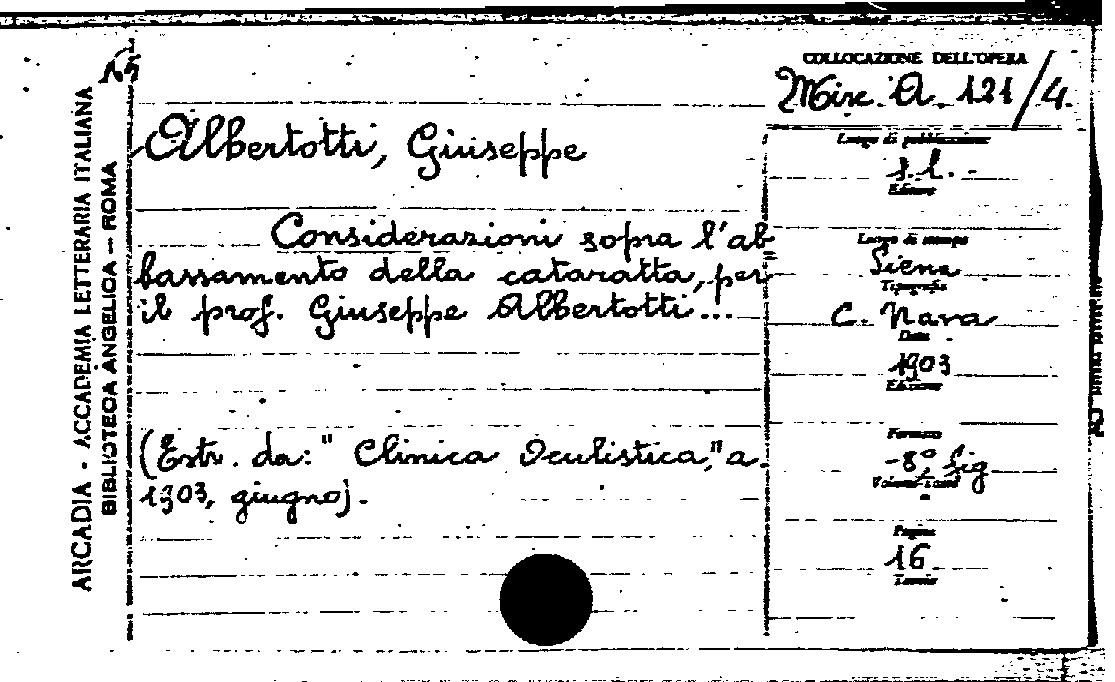 ARCADIA - ACCADEMIA LETTERARIA ITALIANA
BIBLIOTECA ANGELICA – ROMA
Albertotti, Giuseppe
Considerazioni sopra l'ab
bassamento della cataratta, per
il prof. Giuseppe Albertotti...
(Estr. da: " Clinica Oculistica," a.
1903, giugno).
COLLOCAZIONE DELL'OPERA
Misc. A. 121/4.
Luogo di pubblicazione
s.l. -
Editore
Luogo di stampa
Siena
Tipografia
C. Nava
Data
1903
Edizione
Formato
-8°, fig
Pagine
16
Tavole